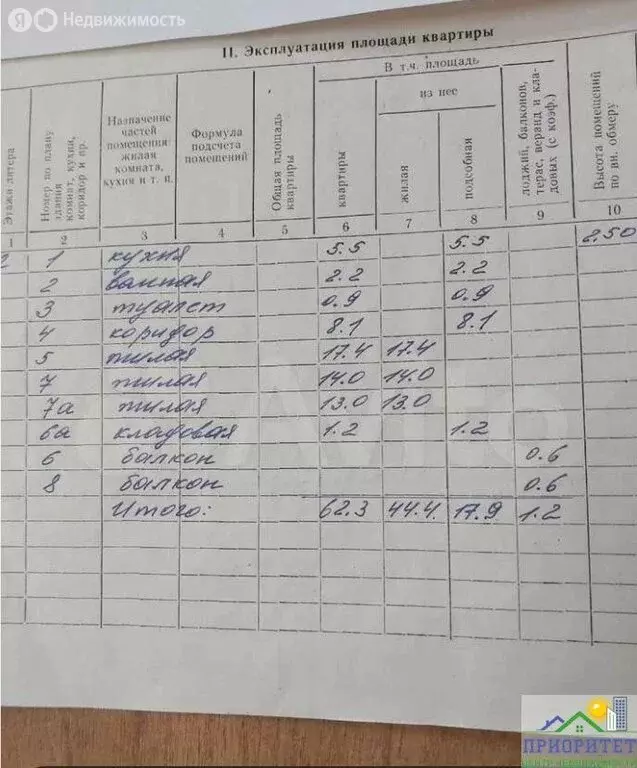 Я Недвижимость
II. Эксплуатация площади квартиры
Этажи литера
Номер по плану здания комнат, кухни, коридор и пр.
Назначение частей помещения: жилая комната, кухня и т. п.
Формула подсчета помещений
Общая площадь квартиры
В т.ч. площадь
из нее
квартиры
жилая
подсобная
лоджий, балконов, терас, веранд и кладовых (с коэф.)
Высота помещений по вн. обмеру
1 2 3 4 5 6 7 8 9 10
2 1 кухня 5.5 5.5 2.50
2 ванная 2.2 2.2
3 туалет 0.9 0.9
4 коридор 8.1 8.1
5 жилая 17.4 17.4
7 жилая 14.0 14.0
7а жилая 13.0 13.0
6а кладовая 1.2 1.2
6 балкон 0.6
8 балкон 0.6
Итого: 62.3 44.4 17.9 1.2
ПРИОРИТЕТ